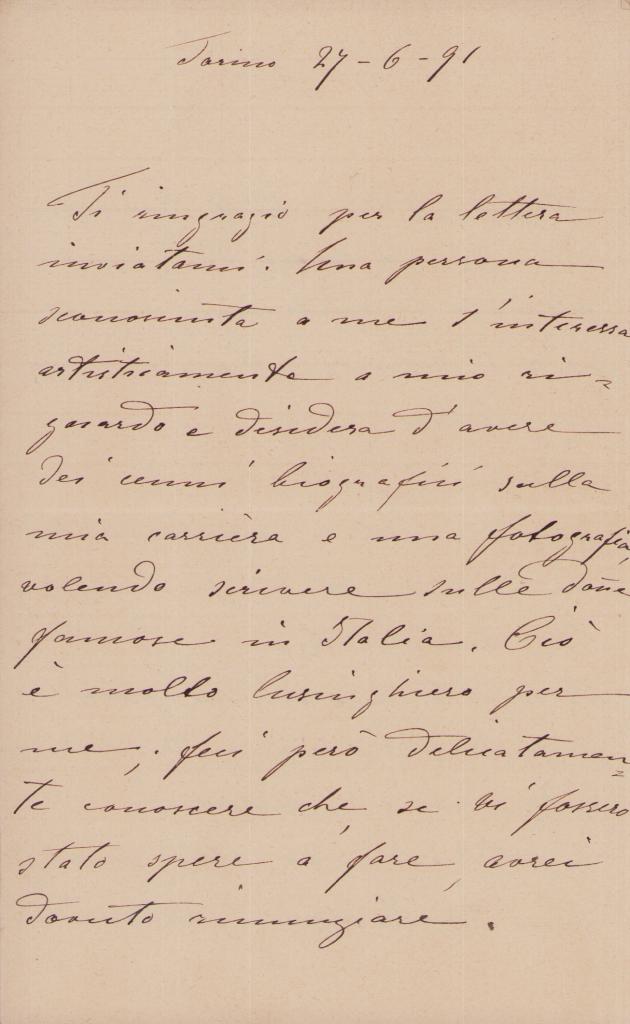 Torino 27-6-91
Ti ringrazio per la lettera
inviatami. Una persona
sconosciuta a me s'interessa
artisticamente a mio ri=
guardo e disidera d'avere
dei cenni biografici sulla
mia carrièra e una fotografia,
volendo scrivere sulle doñe
famose in Italia. Ciò
è molto lusinghiero per
me; feci però delicatamen=
te conoscere che, se vi fossero
stato spese a fare, avrei
dovuto rinunziare.